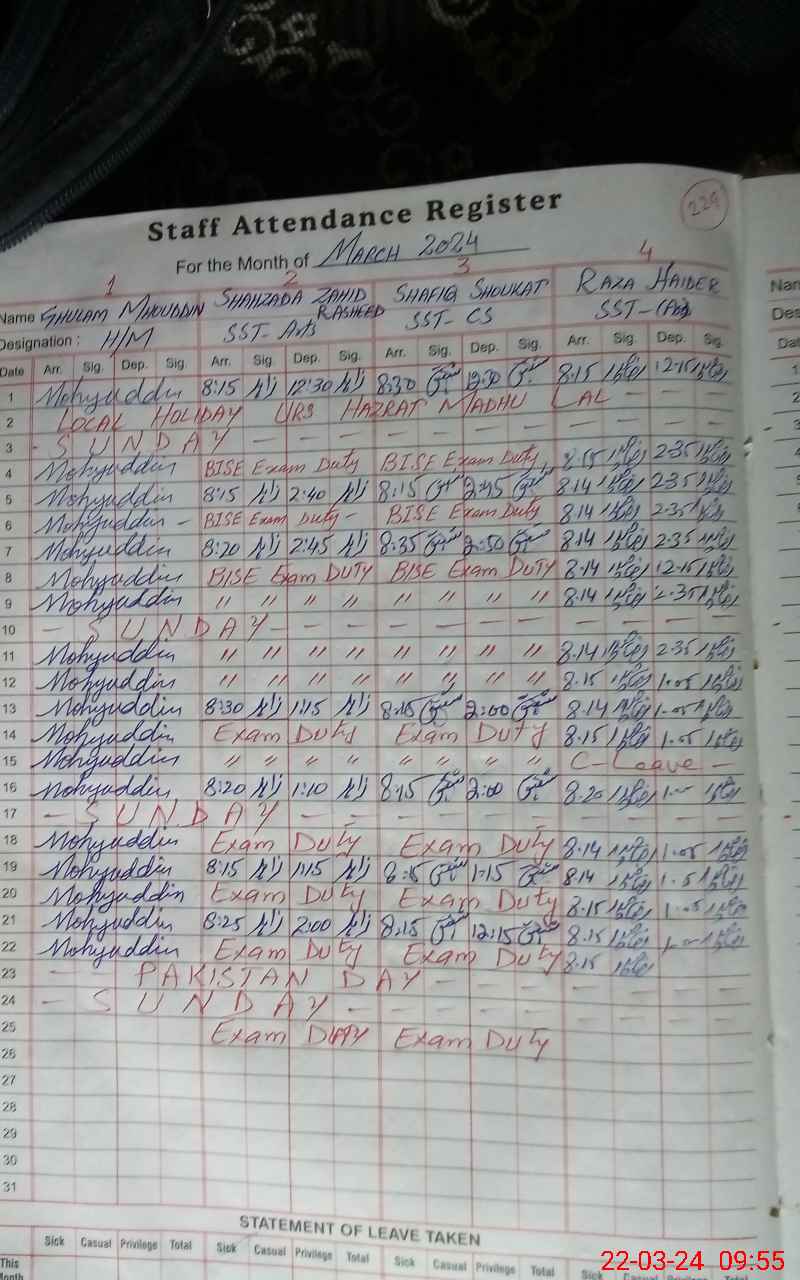 229
Staff Attendance Register
For the Month of MARCH 2024
1 2 3 4
Name GHULAM MHOUDDIN SHAHZADA ZAHID RASHEED SHAFIQ SHOUKAT RAZA HAIDER
Designation : H/M SST- Arts SST- CS SST-
Date Arr. Sig. Dep. Sig. Arr. Sig. Dep. Sig. Arr. Sig. Dep. Sig. Arr. Sig. Dep. Sig.
1 Mohyuddin 8:15 12:30 8:30 12:30 8.15 12.15
2 LOCAL HOLIDAY URS HAZRAT MADHU LAL — —
3 - SUNDAY — — — — — — — — — —
4 Mohyuddin BISE Exam Duty BISE Exam Duty 8.15 2.35
5 Mohyuddin 8:15 2:40 8:15 2:45 8.14 2.35
6 Mohyuddin - BISE Exam Duty - BISE Exam Duty 8.14 2.35
7 Mohyuddin 8:20 2:45 8:35 2:50 8.14 2.35
8 Mohyuddin BISE Exam DUTY BISE Exam DUTY 8.14 12.15
9 Mohyuddin " " " " " " " " 8.14 2.35
10 - SUNDAY - — — — — — — — — —
11 Mohyuddin " " " " " " " " 8.14 2.35
12 Mohyuddin " " " " " " " " 8.15 1.05
13 Mohyuddin 8:30 1:15 8:15 2:00 8.14 1.05
14 Mohyuddin Exam Duty Exam Duty 8.15 1.05
15 Mohyuddin " " " " " " " " C-Leave -
16 Mohyuddin 8:20 1:10 8:15 2:00 8.20
17 - SUNDAY - - - - - - - - - -
18 Mohyuddin Exam Duty Exam Duty 8.14 1.05
19 Mohyuddin 8:15 1:15 1:15 8.14
20 Mohyuddin Exam Duty Exam Duty 8.15 1.05
21 Mohyuddin 8:25 2:00 8:15 12:15 8.15
22 Mohyuddin Exam Duty Exam Duty 8.15
23 - PAKISTAN DAY - - - - - - -
24 - SUNDAY - - - - - - - - -
25 Exam Exam Duty
26
27
28
29
30
31
STATEMENT OF LEAVE TAKEN
Sick Casual Privilege Total Sick Casual Privilege Total Sick Casual Privilege Total Sick
This Month
22-03-24 09:55